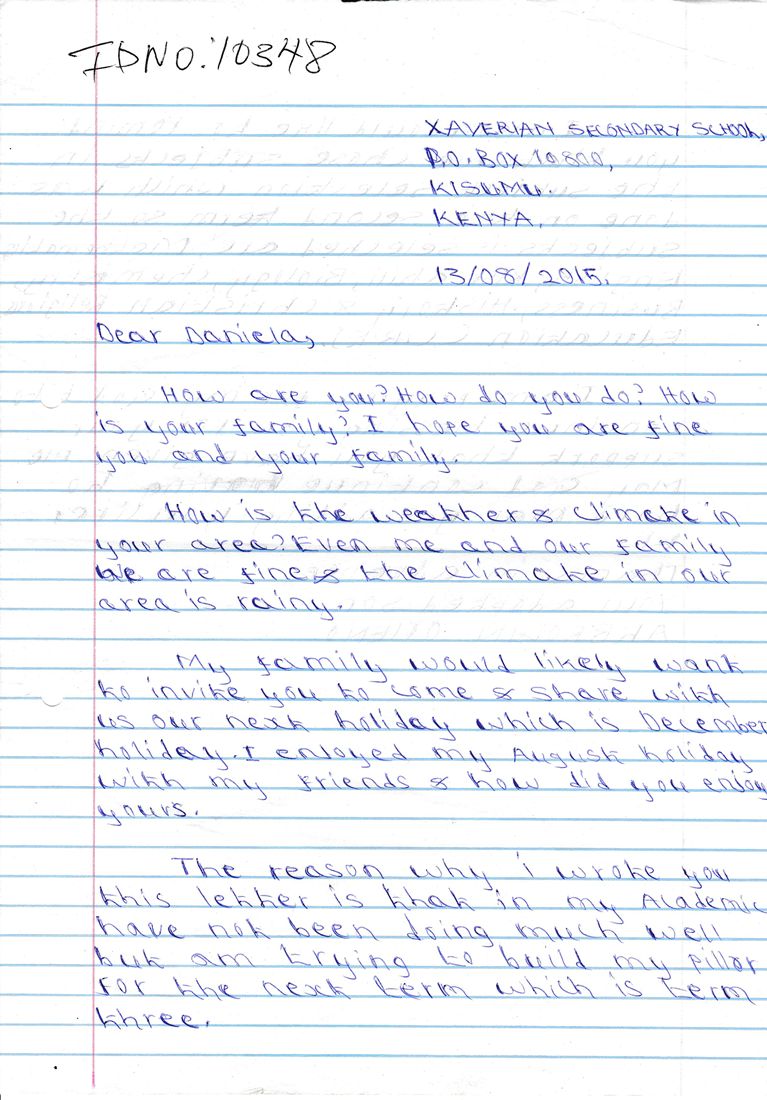 IDNO:10348
XAVERIAN SECONDARY SCHOOL,
P.O. BOX 19800,
KISUMU.
KENYA.
13/08/2015.
Dear Daniela,
How are you? How do you do? How
is your family? I hope you are fine
you and your family.
How is the weather & climate in
your area? Even me and our family
we are fine & the climate in our
area is rainy.
My family would likely want
to invite you to come & share with
us our next holiday which is December
holiday. I enjoyed my August holiday
with my friends & how did you enjoy
yours.
The reason why i wrote you
this letter is that in my Academic
have not been doing much well
but am trying to build my pillor
for the next term which is term
three.